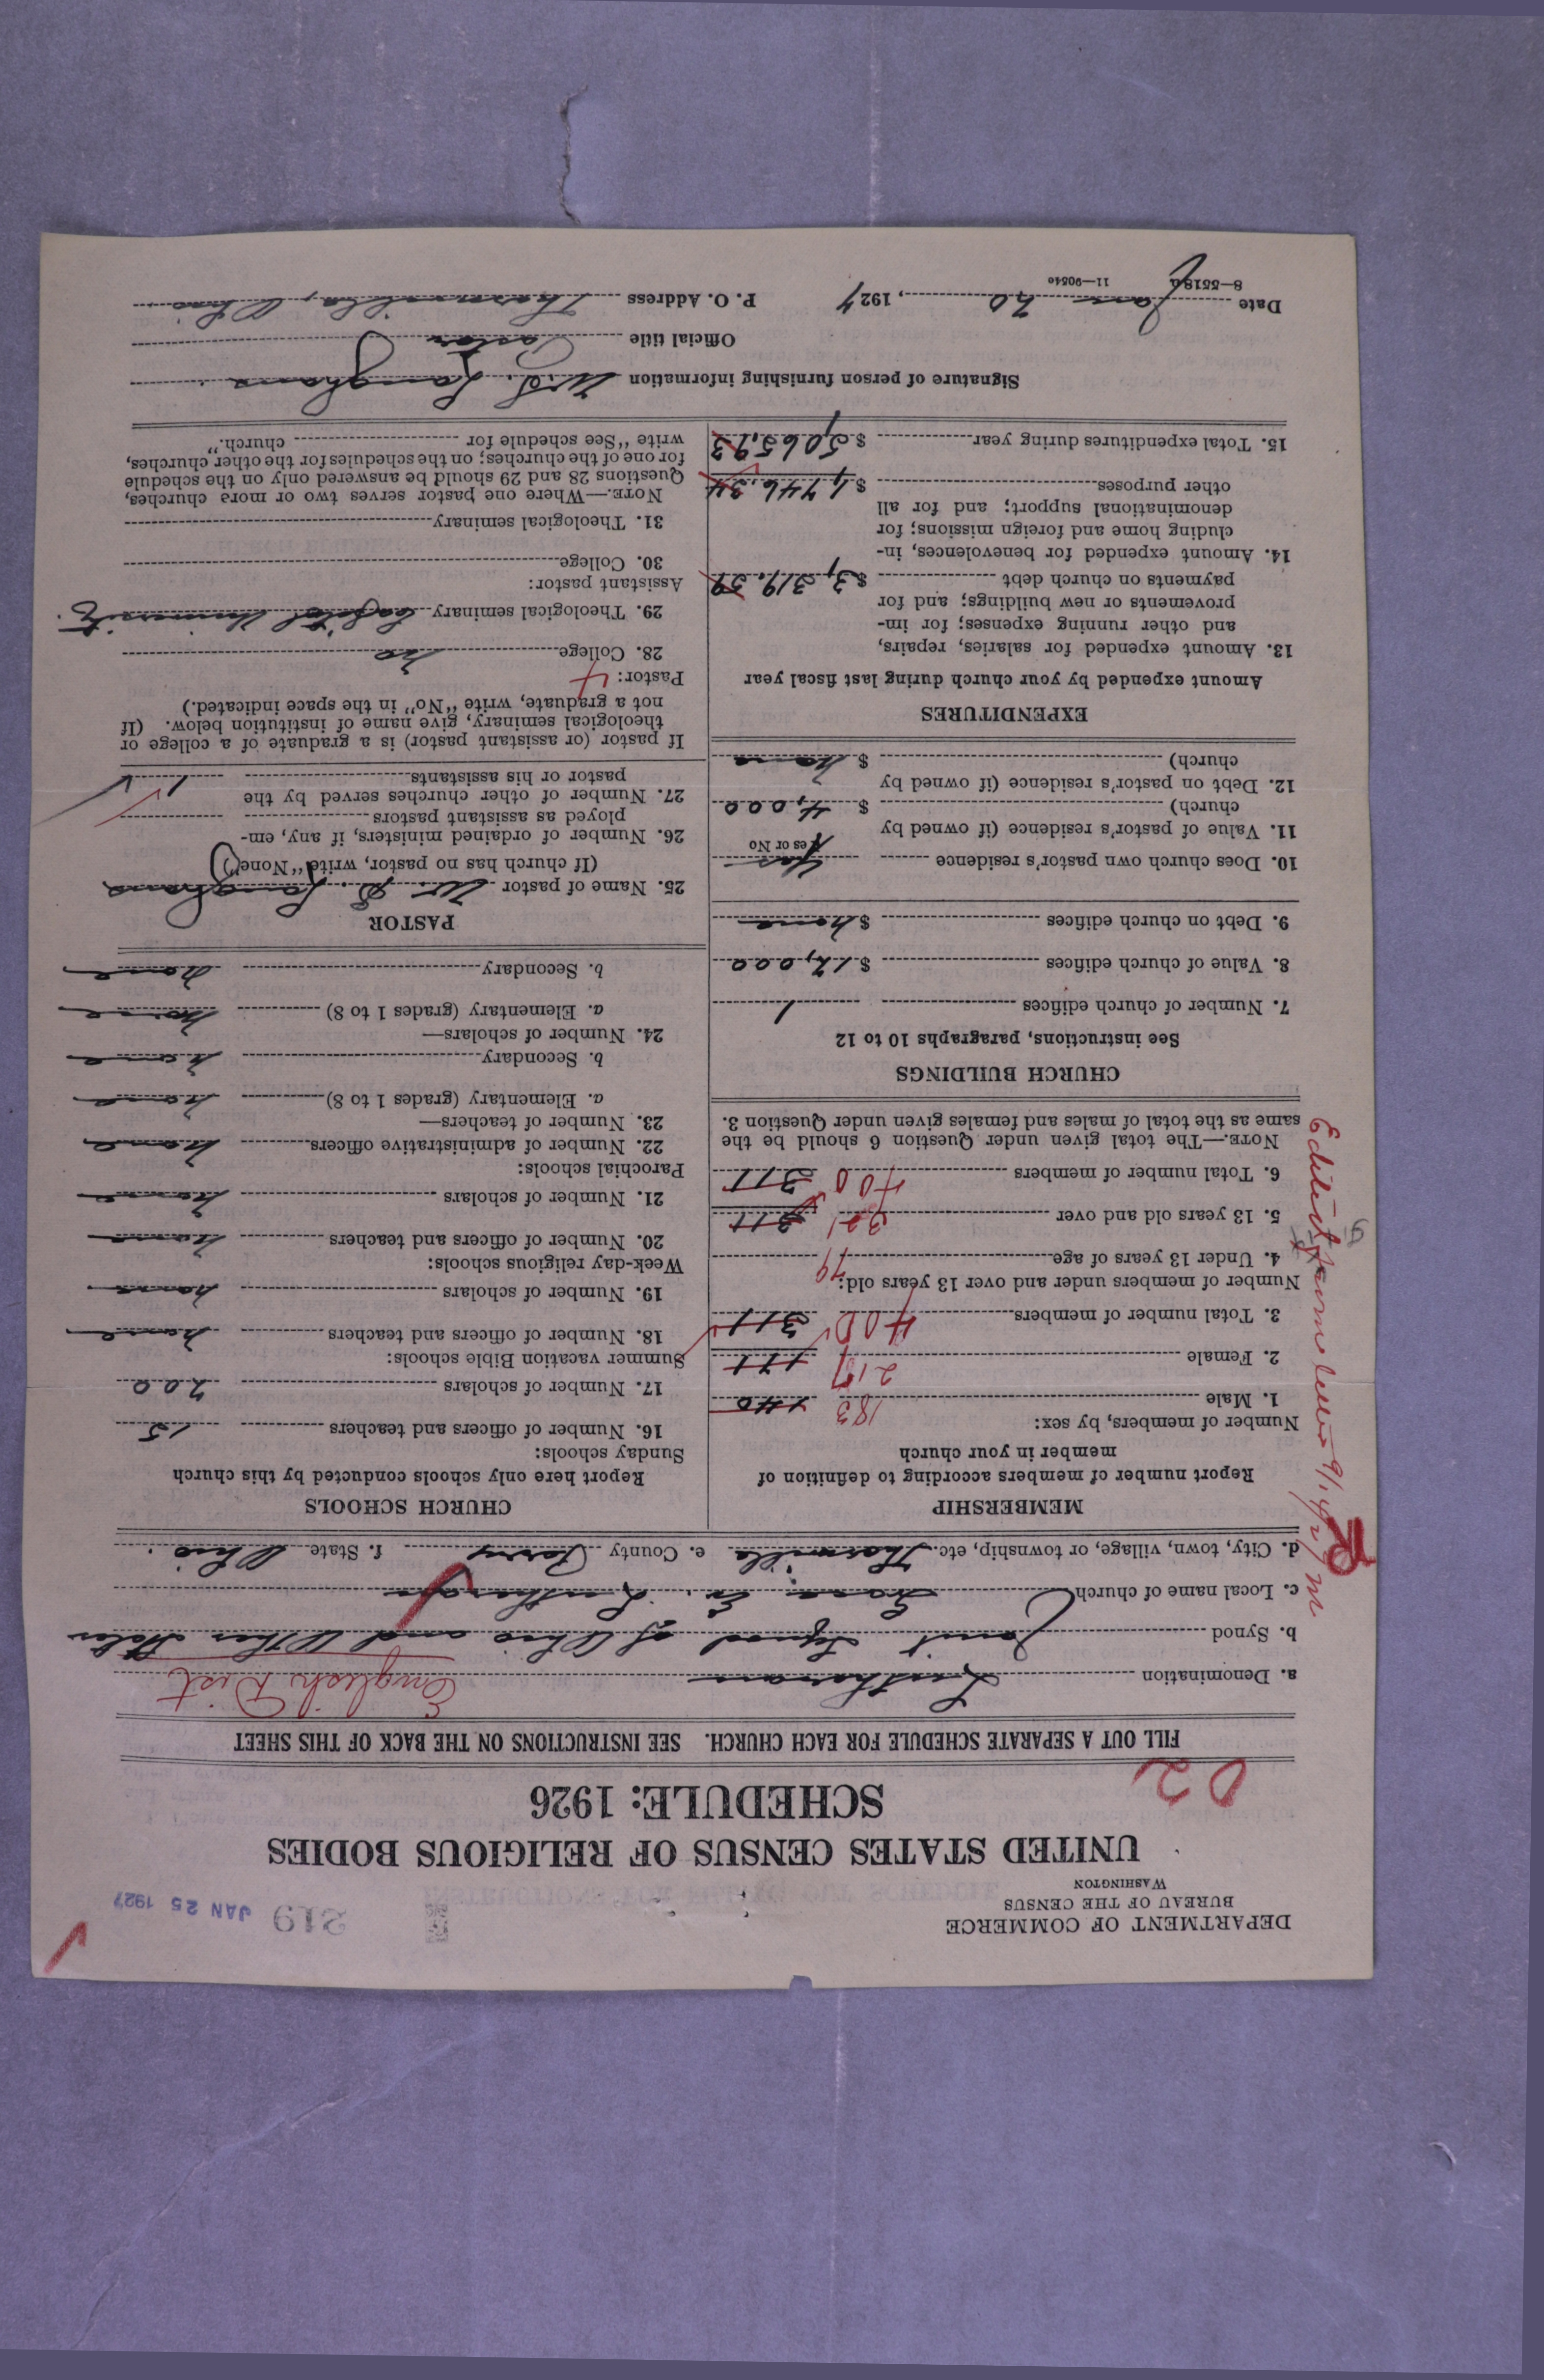 DEPARTMENT OF COMMERCE
BUREAU OF THE CENSUS
WASHINGTON
219 JAN 25 1927
UNITED STATES CENSUS OF RELIGIOUS BODIES
SCHEDULE: 1926
02
FILL OUT A SEPARATE SCHEDULE FOR EACH CHURCH. SEE INSTRUCTIONS ON THE BACK OF THIS SHEET
a. Denomination Lutheran English Dist
b. Synod Joint Synod of Ohio and Other States
c. Local name of church Ev. Lutheran
d. City, town, village, or township, etc. Thornville e. County Perry f. State Ohio.
MEMBERSHIP
Report number of members according to definition of
member in your church
Number of members, by sex:
1. Male 183 140
2. Female 217 171
3. Total number of members 400 311
Number of members under and over 13 years old:
4. Under 13 years of age 79
5. 13 years old and over 321 311
6. Total number of members 400 311
NOTE.—The total given under Question 6 should be the
same as the total of males and females given under Question 3.
CHURCH BUILDINGS
See instructions, paragraphs 10 to 12
7. Number of church edifices 1
8. Value of church edifices $12,000
9. Debt on church edifices $none
10. Does church own pastor's residence Yes
Yes or No
11. Value of pastor's residence (if owned by
church) $4,000
12. Debt on pastor's residence (if owned by
church) $none
EXPENDITURES
Amount expended by your church during last fiscal year
13. Amount expended for salaries, repairs,
and other running expenses; for im-
provements or new buildings; and for
payments on church debt $3,319.59
14. Amount expended for benevolences, in-
cluding home and foreign missions; for
denominational support; and for all
other purposes $1,746.34
15. Total expenditures during year $5,065.93
CHURCH SCHOOLS
Report here only schools conducted by this church
Sunday schools:
16. Number of officers and teachers 15
17. Number of scholars 200
Summer vacation Bible schools:
18. Number of officers and teachers none
19. Number of scholars none
Week-day religious schools:
20. Number of officers and teachers none
21. Number of scholars none
Parochial schools:
22. Number of administrative officers none
23. Number of teachers—
a. Elementary (grades 1 to 8) none
b. Secondary none
24. Number of scholars—
a. Elementary (grades 1 to 8) none
b. Secondary none
PASTOR
25. Name of pastor W. D. Langhans
(If church has no pastor, write "None")
26. Number of ordained ministers, if any, em-
ployed as assistant pastors
27. Number of other churches served by the
pastor or his assistants 1
If pastor (or assistant pastor) is a graduate of a college or
theological seminary, give name of institution below. (If
not a graduate, write "No" in the space indicated.)
Pastor: 4
28. College no
29. Theological seminary Capital University.
Assistant pastor:
30. College
31. Theological seminary
NOTE.—Where one pastor serves two or more churches,
Questions 28 and 29 should be answered only on the schedule
for one of the churches; on the schedules for the other churches,
write "See schedule for church."
Signature of person furnishing information W. D. Langhans
Official title Pastor
Date Jan 20, 1927 P. O. Address Thornville, Ohio
8—5518a 11—9051c